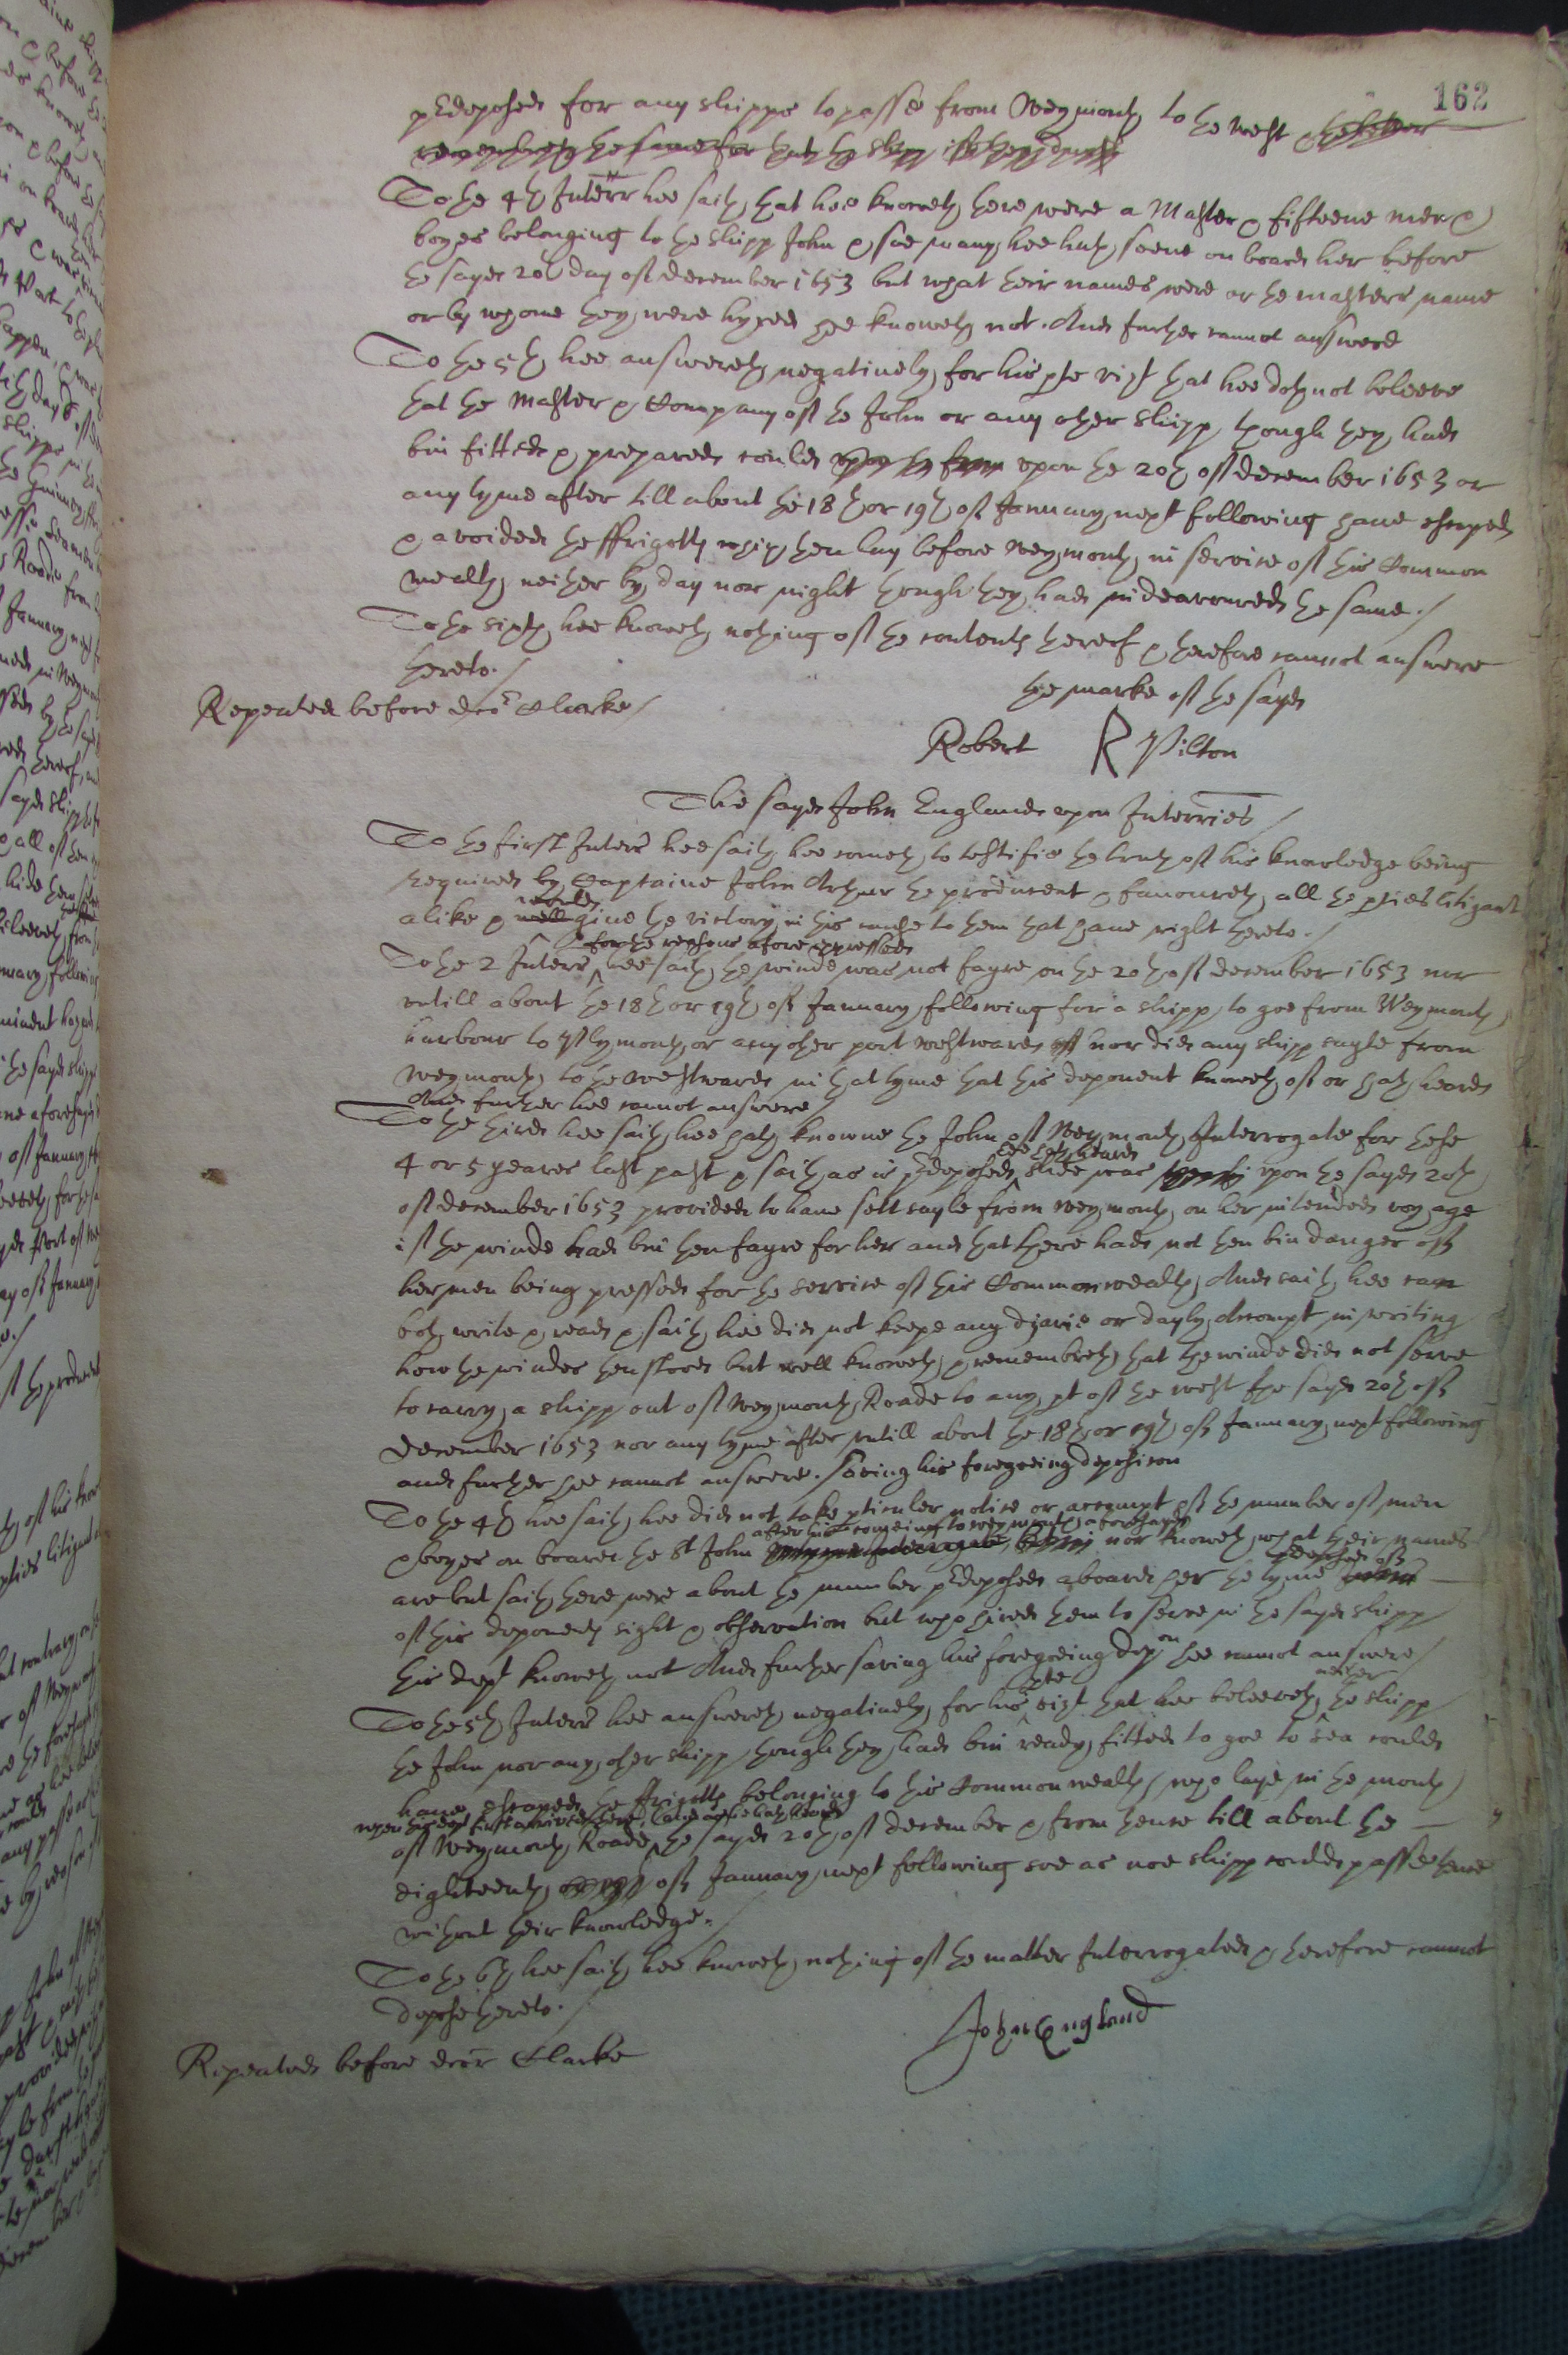 162
predeposed for any shippe to passe from Weymouth to the west
To the 4th Interr hee saith that hee knoweth there were a Master & fifteene men &
boyes belonging to the shipp John & soe many hee hath seene on board her before
the sayd 20th day of december 1653 but what their names were or the masters name
or by whome they were hyred hee knoweth not. And further cannot answere
To the 5th hee answereth negatively for his pte vizt that hee doth not beleeve
that the Master & Company of the John or any other shipp though they had
bin fitted & prepared could upon the 20th of december 1653 or
any tyme after till about the 18th or 19th of January next following have escaped
& avoided the ffrigotts which then lay before Weymouth in service of this Common
wealth neither by day nor night though they had indeavoured the same./
To the sixth hee knoweth nothing of the contents thereof & therefore cannot answere
thereto./
Repeated before dcor Clarke/
the marke of the sayd
Robert R Pilton
The sayd John England upon Interries/
To the first Interr hee saith hee cometh to testifie the truth of his knowledge being
required by Captaine John Arthur the producent & favoureth all the pties litigant
alike & would give the victory in this cause to them that have right thereto./
for the reasons afore expressed
To the 2 Interr hee saith the winde was not fayre on the 20th of december 1653 nor
untill about the 18th or 19th of January following for a shipp to goe from Weymouth
harbour to Plymouth or any other port westward nor did any shipp sayle from
Weymouth to the westward in that tyme that this deponent knoweth of or hath heard
And further hee cannot answere/
To the third hee saith hee hath knowne the John of Weymouth Interrogate for these
4 or 5 yeares last past & saith as is predeposed hee hath heard shee was upon the sayd 20th
of december 1653 provided to have sett sayle from Weymouth on her intended voyage
if the winde had bin then fayre for her and that there had not then bin danger of
her men being pressed for the service of this Commonwealth, And saith hee can
both write & read & saith hee did not keepe any dyarie or dayly Accompt in writing
how the windes then stood but well knoweth & remembreth that the winde did not serve
to carry a shipp out of Weymouth Roade to any pt of the west the sayd 20th of
december 1653 nor any tyme after untill about the 18th or 19th of January next following
and further hee cannot answere. saving his foregoeing deposicon
To the 4th hee saith hee did not take pticuler notice or accompt of the number of men
after his comeing to Weymouth aforesayd
& boyes on board the St John nor knoweth what their names
predeposed of
are but saith there were about the number predeposed aboard her the tyme
of this deponents sight & observation but who hired them to serve in the sayd shipp
this dept knoweth not And further saving his foregoeing depon hee cannot answere/
To the 5th Interr hee answereth negatively for his pte vizt that hee beleeveth neither the shipp
the John nor any other shipp though they had bin ready fitted to goe to sea could
have escaped the ffrigotts belonging to this Commonwealth who laye in the mouth
when this dept first arrived there, & and as hee hath heard
of Weymouth Roade the sayd 20th of december & from thence till about the
eighteenth of January next following soe as noe shipp could passe thence
without their knowledge./
To the 6th hee saith hee knoweth nothing of the matter Interrogated & therefore cannot
depose thereto./
John England
Repeated before dcor Clarke